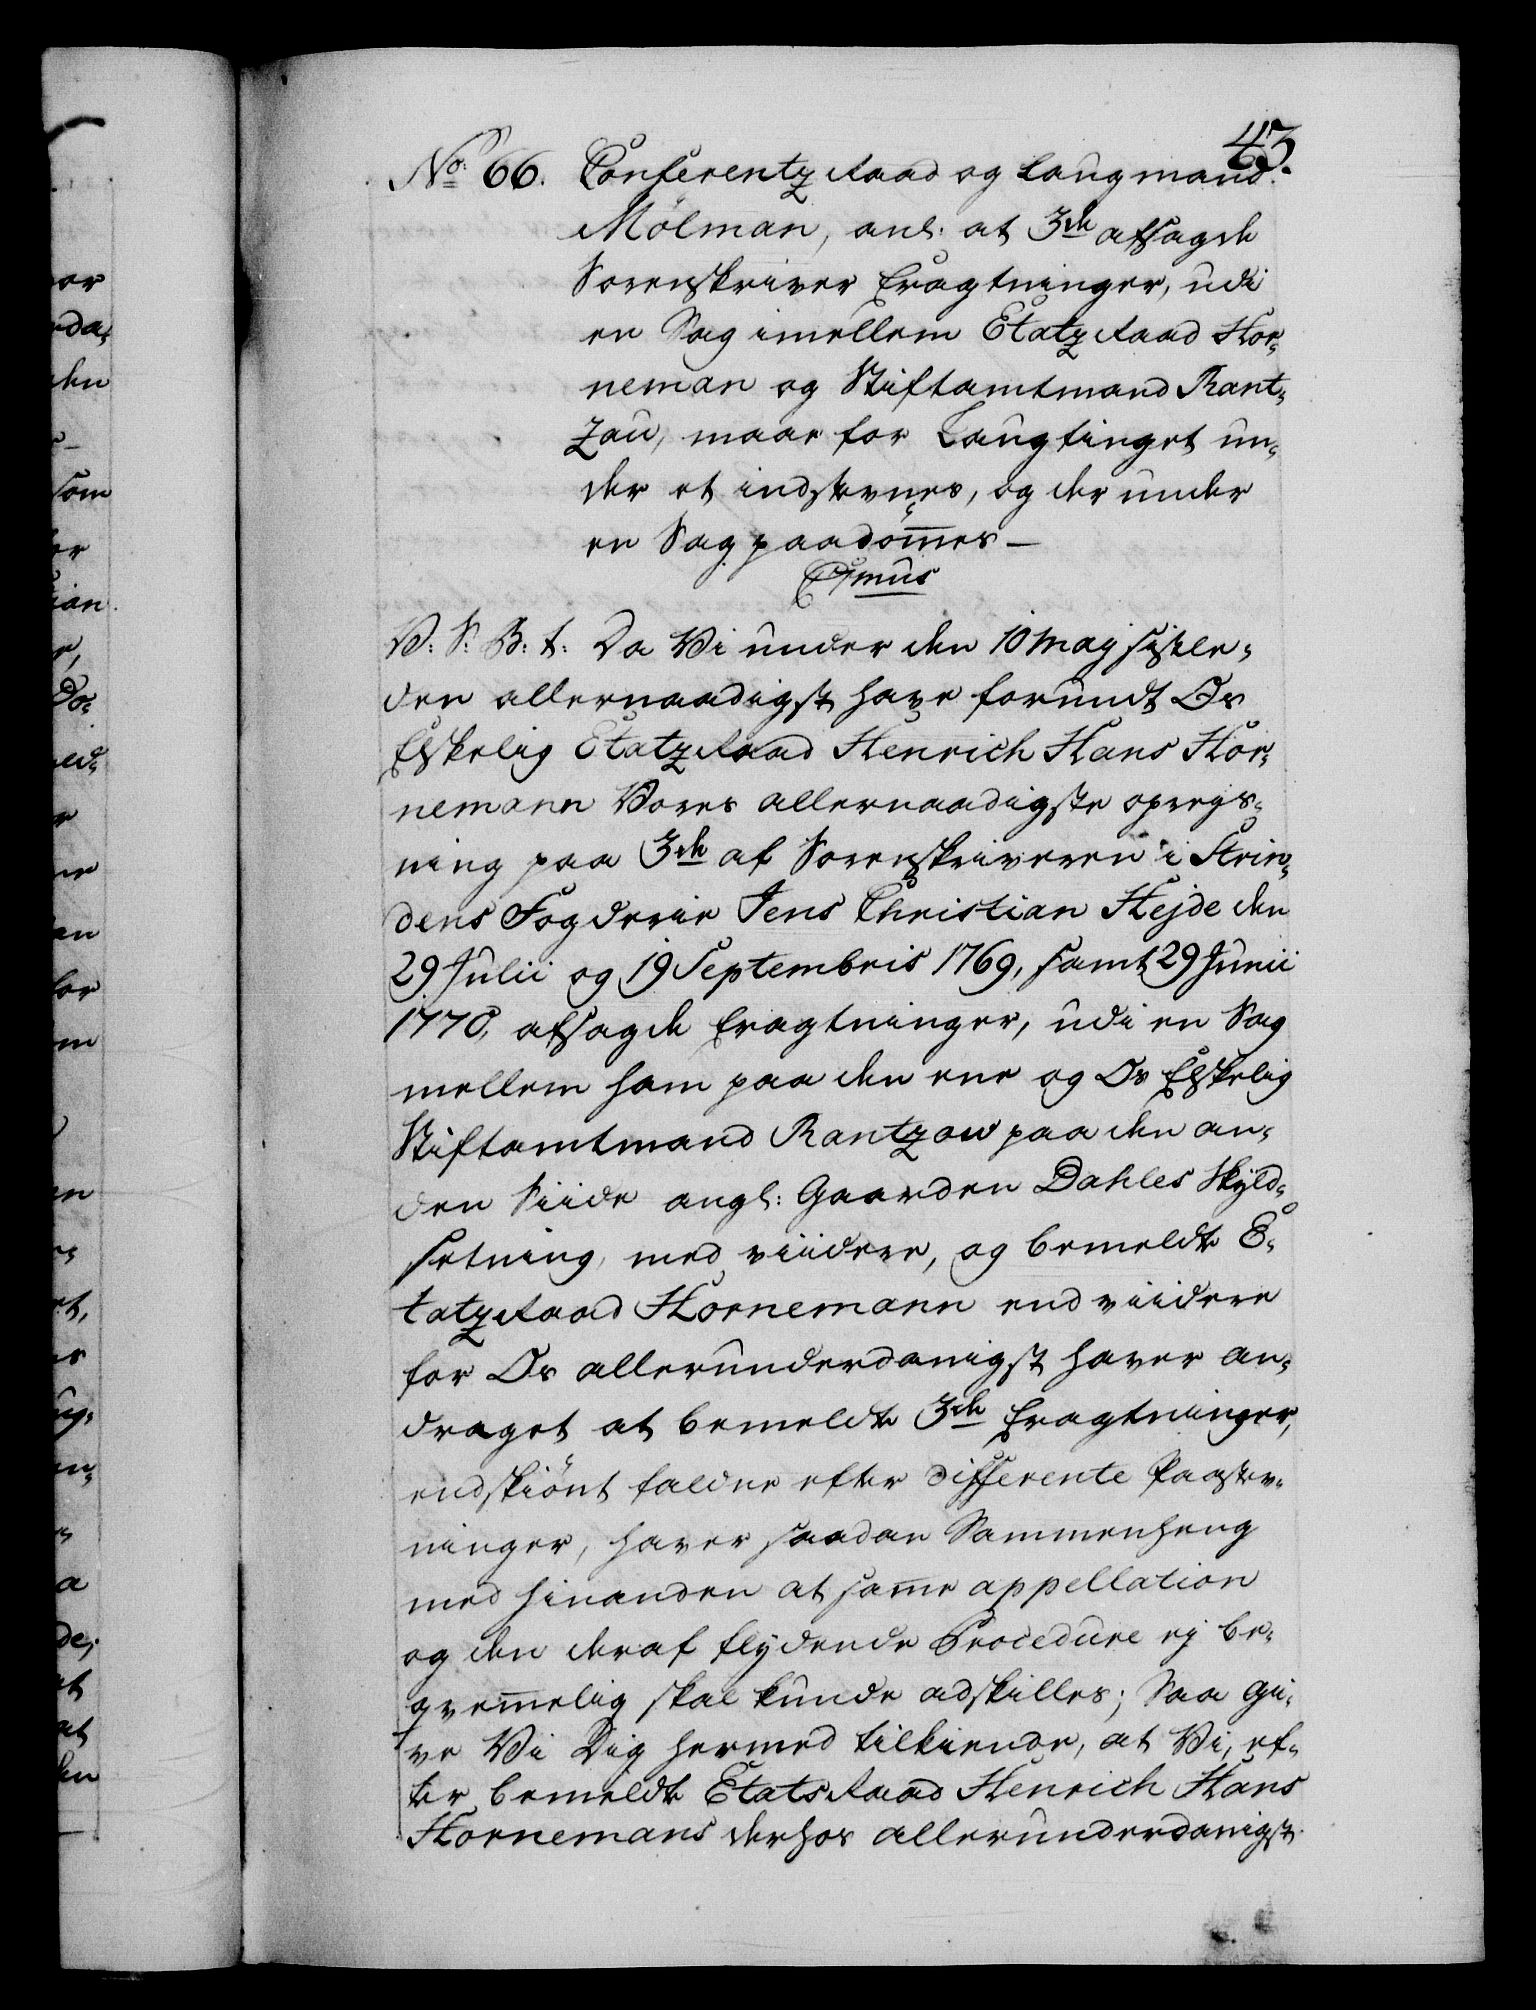 43.
No: 66. Conferentz Raad og Laugmand
Mölman, anl: at 3de afsagde
Sorenskriver Eragtninger, udi
en Sag imellem Etatz Raad Hor-
neman og Stiftamtmand Rant-
zau, maae for Laugtinget un-
der et indstevnes, og der under
en Sag paadömes —
C7mus
V: S: B: t: Da Vi under den 10 Maj sistle-
den allernaadigst have forundt Os
Elskelig Etatz Raad Henrich Hans Hor-
nemann Vores allernaadigste opreys-
ning paa 3de af Sorenskriveren i Strin-
dens Fogderie Jens Christian Hejde den
29 Julii og 19 Septembris 1769, samt 29 Junii
1770, afsagde Eragtninger, udi en Sag
mellem ham paa den ene og Os Elskelig
Stiftamtmand Rantzow paa den an-
den Siide angl: Gaarden Dahles Skyld-
setning, med viidere, og bemeldte E-
tatz Raad Hornemann end viidere
for Os allerunderdanigst haver an-
draget at bemeldte 3de Eragtninger,
endskiönt faldne efter differente Paastev-
ninger, haver saadan Sammenheng
med hinanden at same appellation
og den deraf flydende Procedure ej be-
qvemelig skal kunde adskilles; Saa gi-
ve Vi Dig hermed tilkiende, at Vi, ef-
ter bemeldte Etats Raad Henrich Hans
Hornemans derhos allerunderdanigst